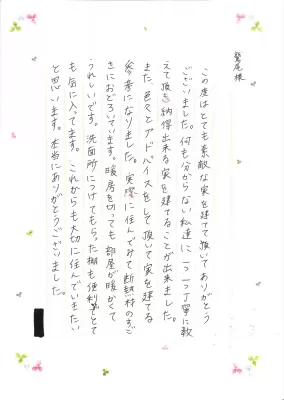 鷲尾様
この度はとても素敵な家を建てて頂いてありがとう
ございました。何も分からない私達に、一つ一つ丁寧に教
えて頂き納得出来る家を建てることが出来ました。
また、色々とアドバイスをして頂いて家を建てる
参考になりました。実際に住んでみて断熱材のすご
さにおどろいています。暖房を切っても部屋が暖かくて
うれしいです。洗面所につけてもらった棚も便利でとて
も気に入ってます。これからも大切に住んでいきたい
と思います。本当にありがとうございました。